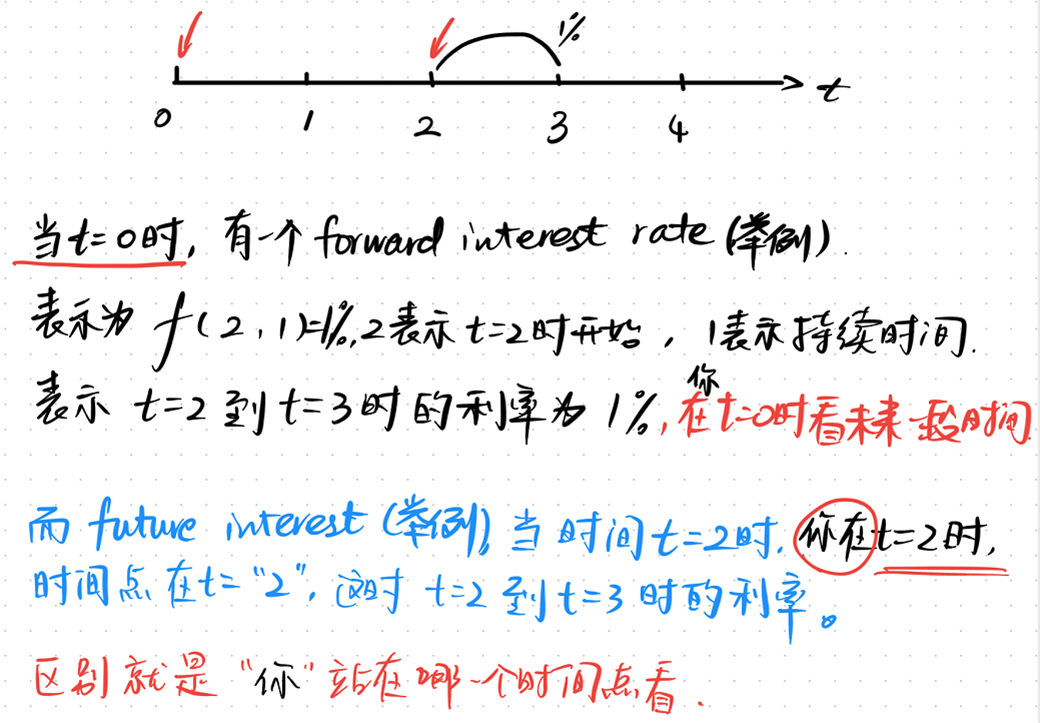 1%
0 1 2 3 4 t
当t=0时, 有一个 forward interest rate (举例).
表示为 f(2,1)=1%, 2表示 t=2时开始, 1表示持续时间.
表示 t=2 到 t=3时的利率为 1%, 你在t=0时看未来一段时间
而 future interest (举例), 当时间t=2时, 你在t=2时,
时间点在t="2", 这时 t=2 到 t=3 时的利率。
区别就是 "你" 站在哪一个时间点看.